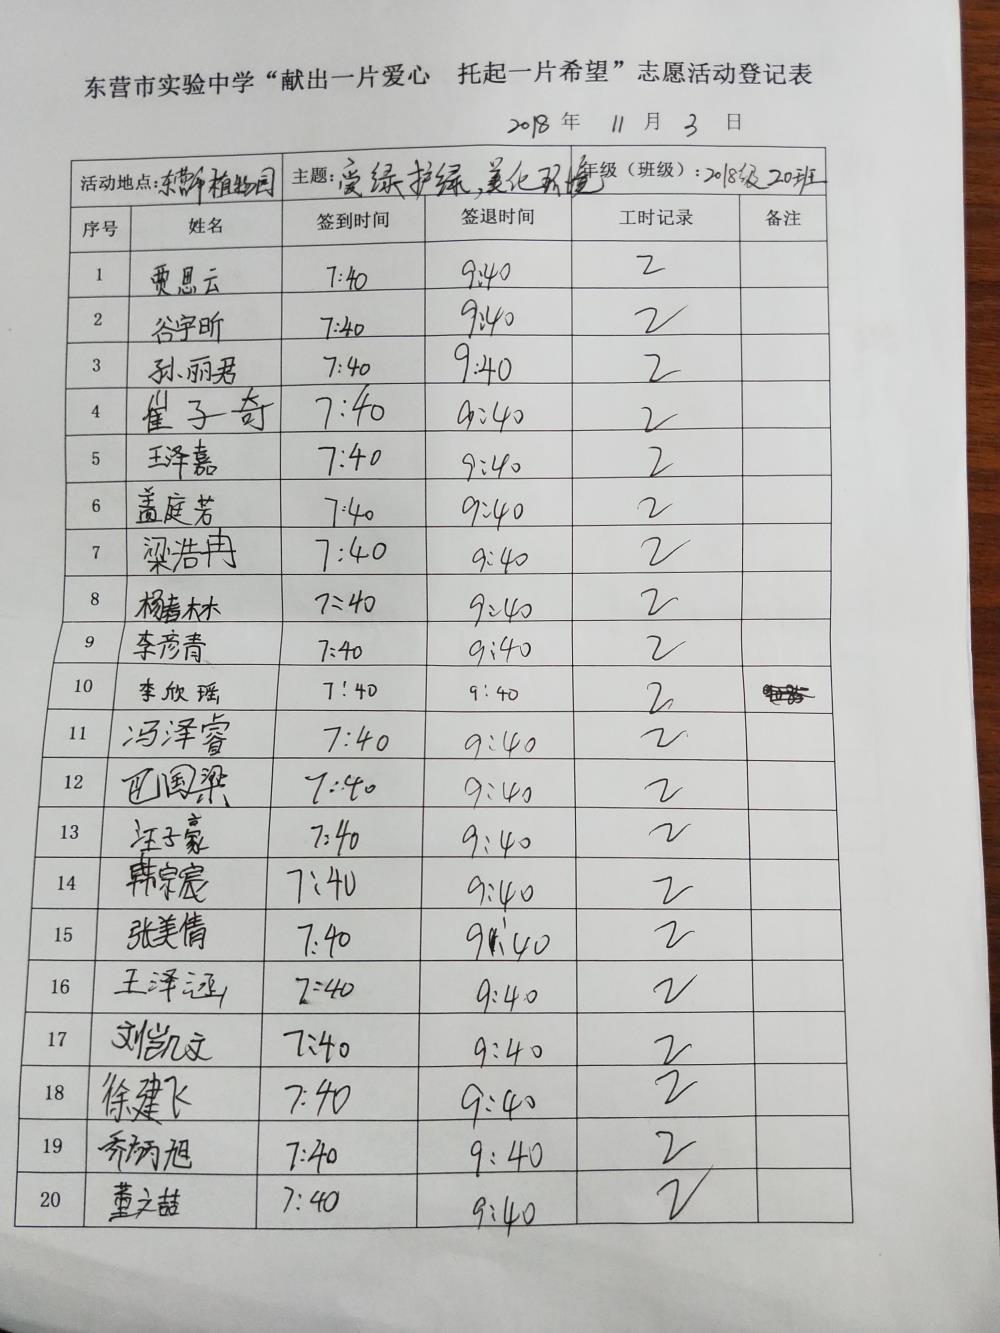 东营市实验中学“献出一片爱心 托起一片希望”志愿活动登记表
2018 年 11 月 3 日
活动地点:东营市植物园 主题:爱绿护绿,美化环境 年级（班级）:2018级20班
序号 姓名 签到时间 签退时间 工时记录 备注
1 贾思云 7:40 9:40 2
2 谷宇昕 7:40 9:40 2
3 孙丽君 7:40 9:40 2
4 崔子奇 7:40 9:40 2
5 王泽嘉 7:40 9:40 2
6 盖庭芳 7:40 9:40 2
7 梁浩冉 7:40 9:40 2
8 杨春林 7:40 9:40 2
9 李彦青 7:40 9:40 2
10 李欣瑶 7:40 9:40 2
11 冯泽睿 7:40 9:40 2
12 国梁 7:40 9:40 2
13 汪子豪 7:40 9:40 2
14 韩宗宸 7:40 9:40 2
15 张美倩 7:40 9:40 2
16 王泽涵 7:40 9:40 2
17 刘凯文 7:40 9:40 2
18 徐建飞 7:40 9:40 2
19 乔炳旭 7:40 9:40 2
20 董文喆 7:40 9:40 2